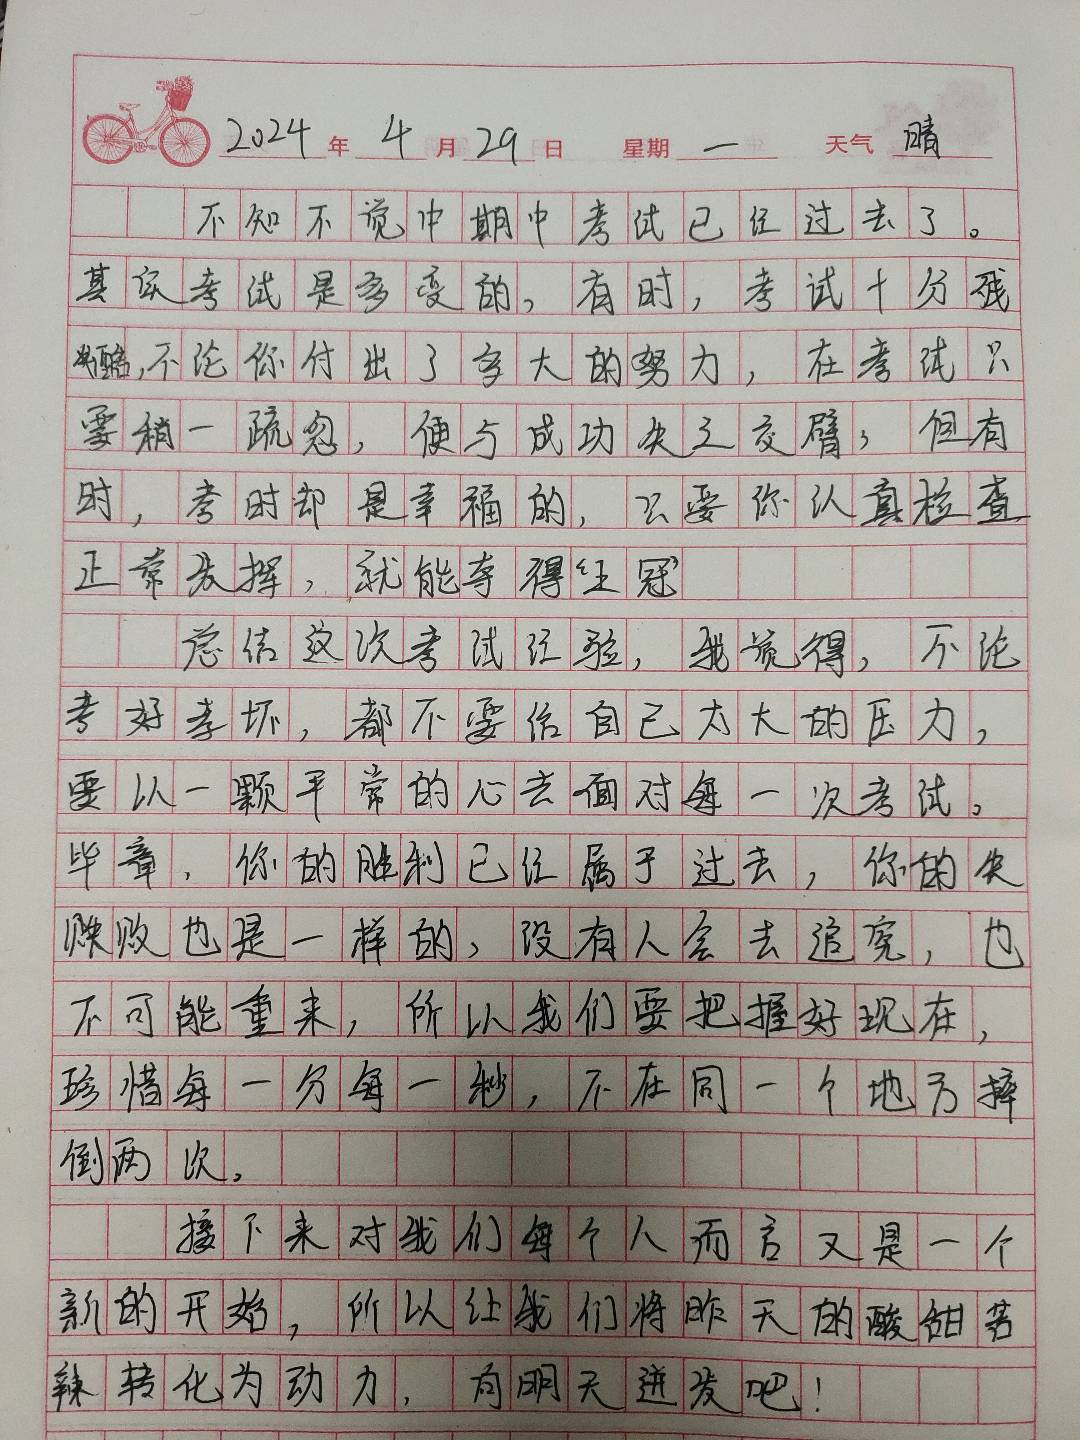 2024年4月29日 星期一 天气晴
不知不觉中期中考试已经过去了。
其实考试是多变的，有时，考试十分残
酷，不论你付出了多大的努力，在考试只
要稍一疏忽，便与成功失之交臂，但有
时，考时却是幸福的，只要你认真检查
正常发挥，就能夺得红冠
总结这次考试经验，我觉得，不论
考好考坏，都不要给自己太大的压力，
要以一颗平常的心去面对每一次考试。
毕章，你的胜利已经属于过去，你的失
败也是一样的，没有人会去追究，也
不可能重来，所以我们要把握好现在，
珍惜每一分每一秒，不在同一个地方摔
倒两次。
接下来对我们每个人而言又是一个
新的开始，所以让我们将昨天的酸甜苦
辣转化为动力，向明天迸发吧！